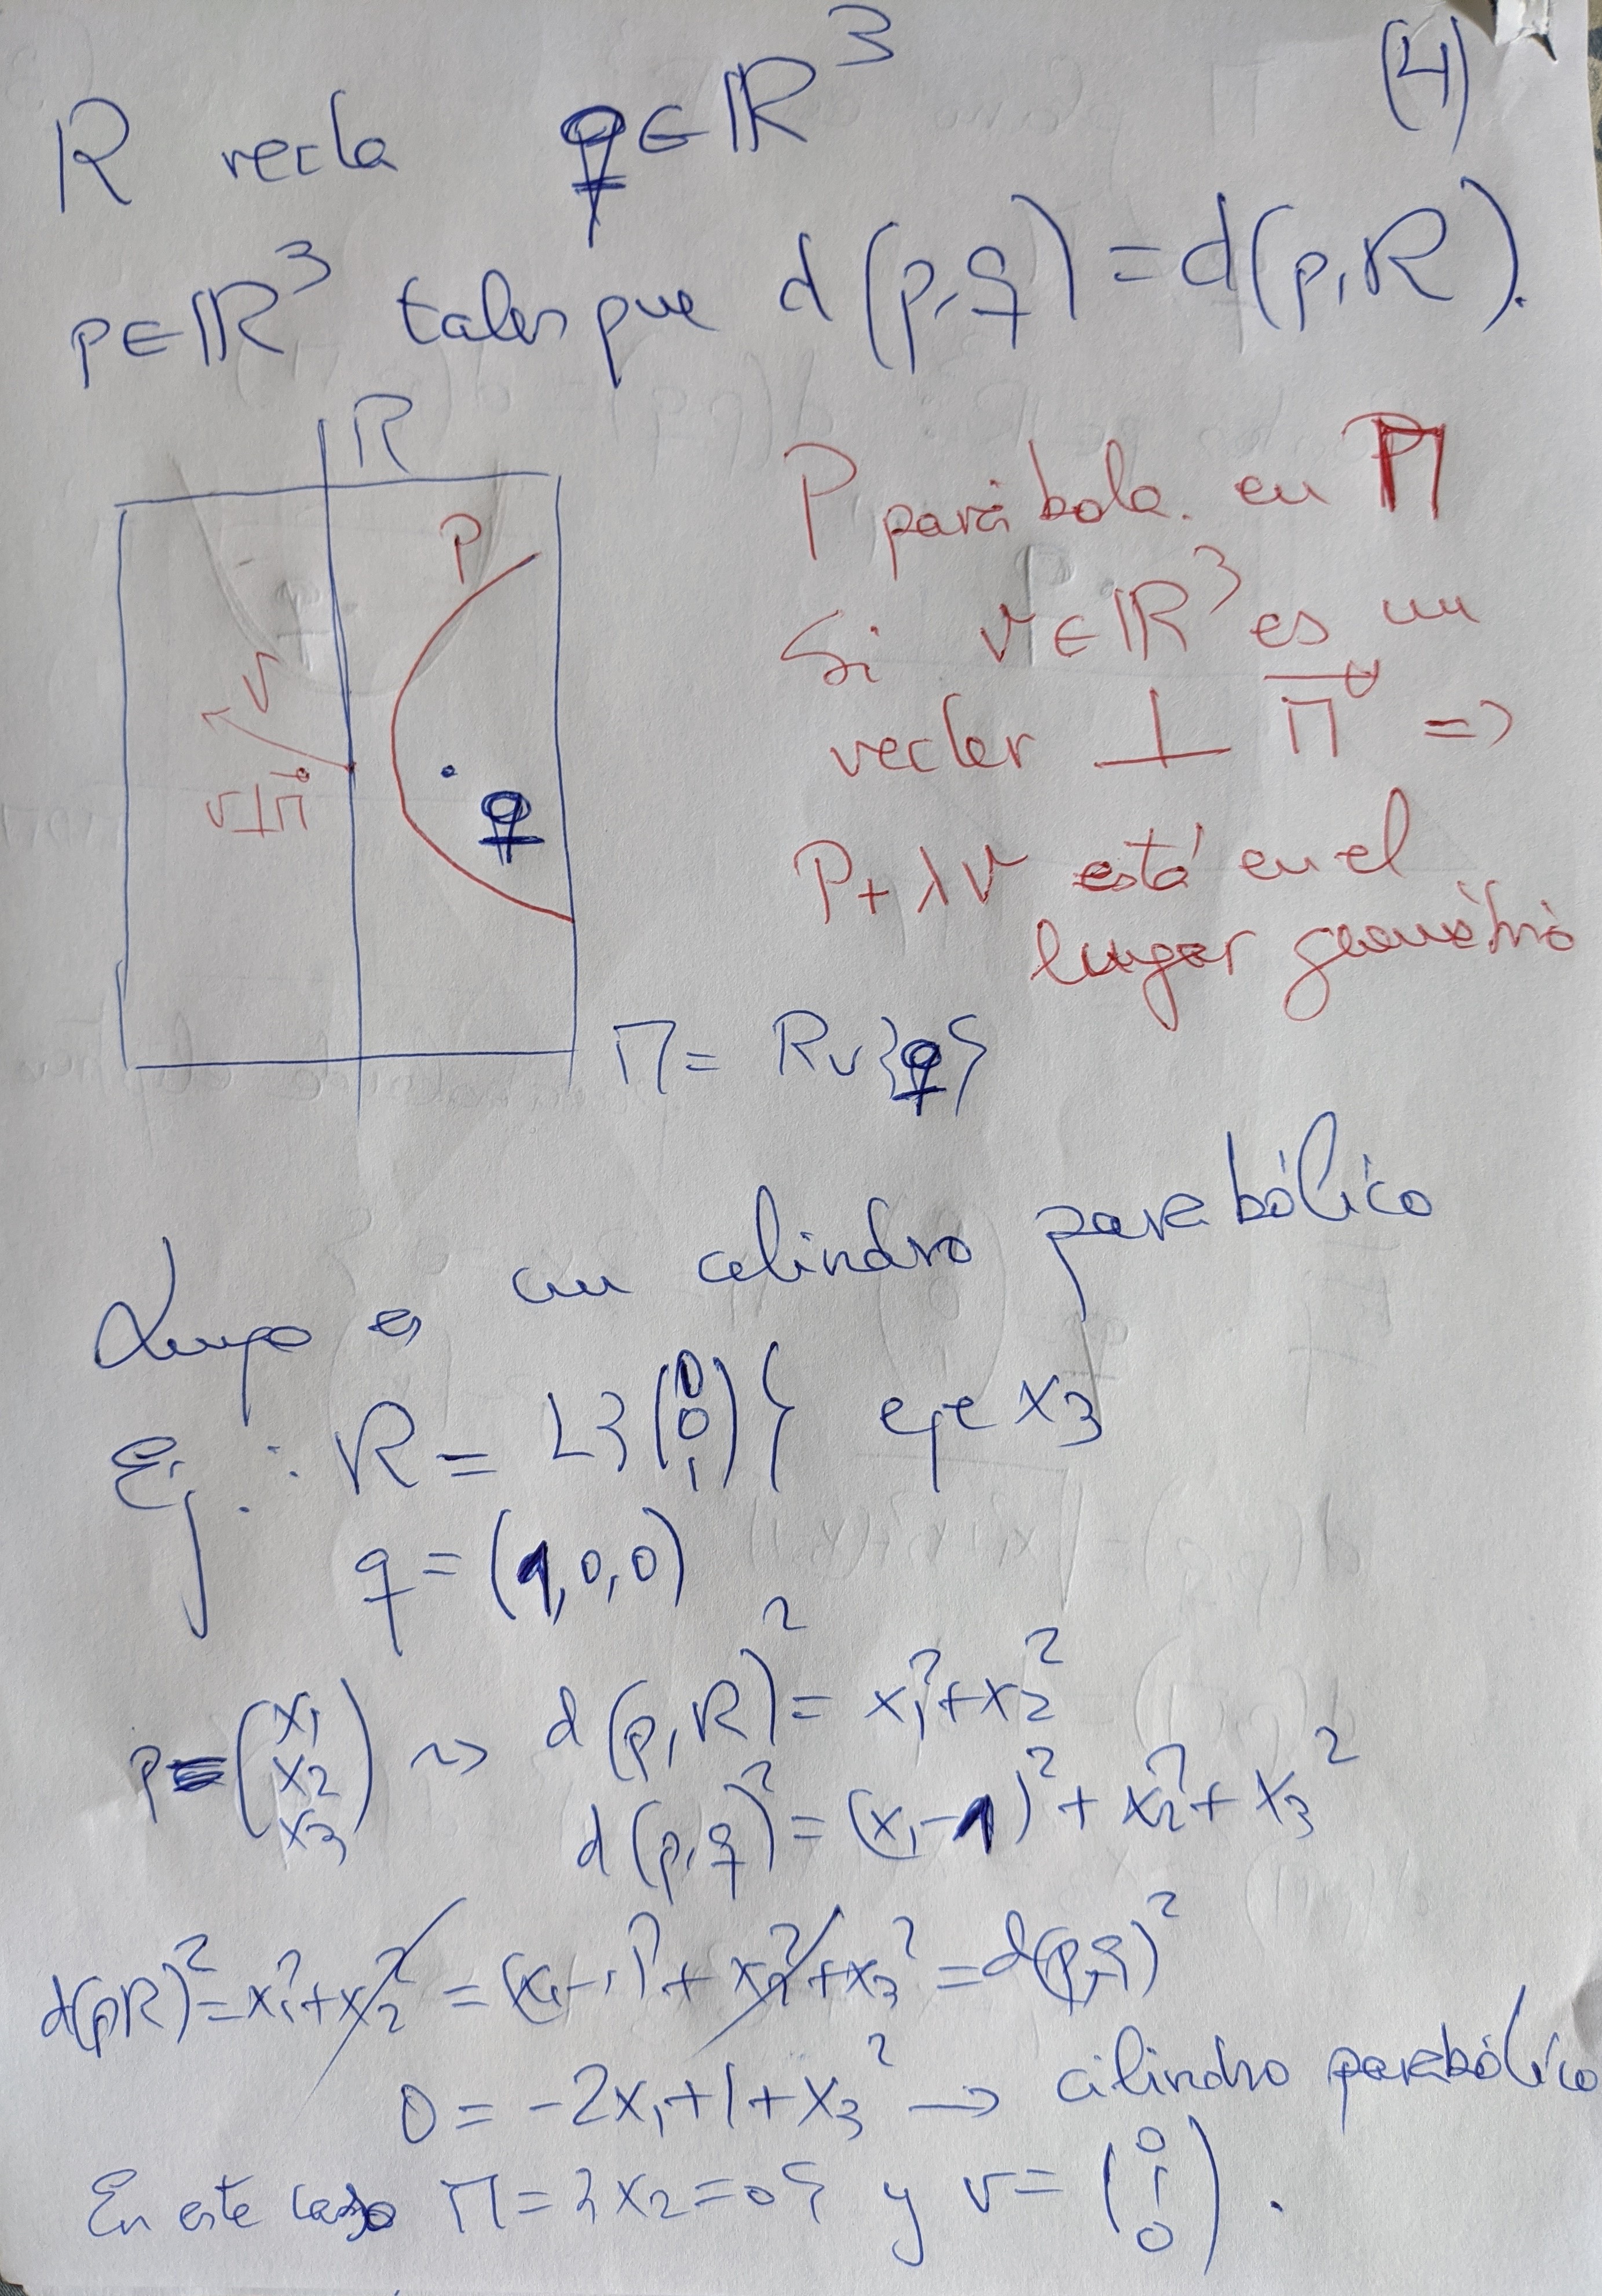 (4)
R recta q ∈ ℝ³
p ∈ ℝ³ tales que d(p,q) = d(p,R).
R
P
v
v⊥Π
q
P parábola en Π
Si v ∈ ℝ³ es un
vector ⊥ Π =>
P + λv está en el
lugar geométrico
Π = R ∨ {q}
Luego es un cilindro parabólico
Ej.: R = L{(0 0 1)} eje x₃
q = (1,0,0)
p = (x₁ x₂ x₃) ⇝ d(p,R)² = x₁² + x₂²
d(p,q)² = (x₁-1)² + x₂² + x₃²
d(p,R)² = x₁² + x₂² = (x₁-1)² + x₂² + x₃² = d(p,q)²
0 = -2x₁ + 1 + x₃² → cilindro parabólico
En este caso Π = {x₂ = 0} y v = (0 1 0).